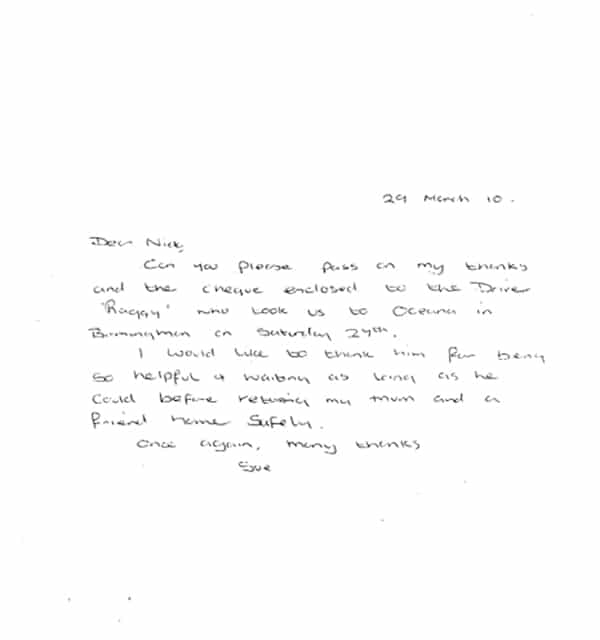 29 March 10.
Dear Nick,
Can you please pass on my thanks
and the cheque enclosed to the Driver
"Raggy" who took us to Oceana in
Birmingham on Saturday 27th.
I would like to thank him for being
so helpful & waiting as long as he
could before returning my mum and a
friend home safely.
Once again, many thanks
Sue